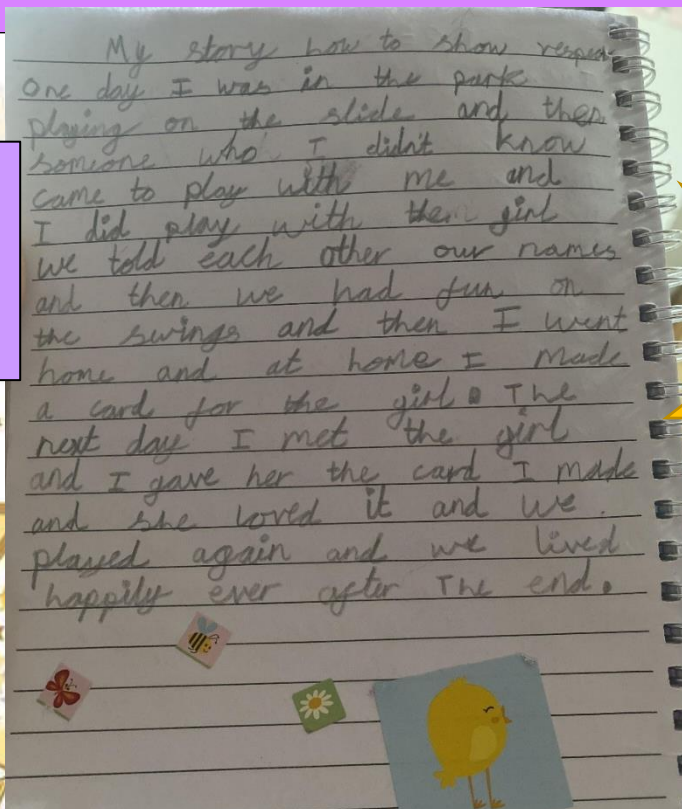 My story how to show respect
One day I was in the park
playing on the slide and then
someone who I didn't know
came to play with me and
I did play with them girl
we told each other our names
and then we had fun on
the swings and then I went
home and at home I made
a card for the girl. The
next day I met the girl
and I gave her the card I made
and she loved it and we.
played again and we lived
happily ever after The end.